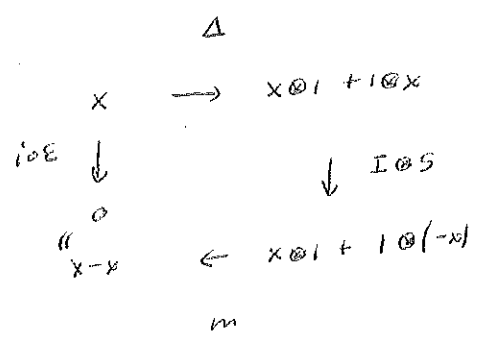 Δ
x → x⊗1 + 1⊗x
i∘ε ↓ ↓ I⊗S
0
"
x-x ← x⊗1 + 1⊗(-x)
m